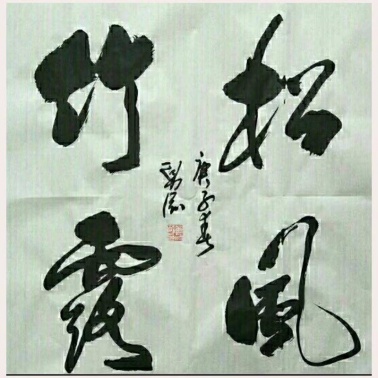 松風
竹露
庚子春